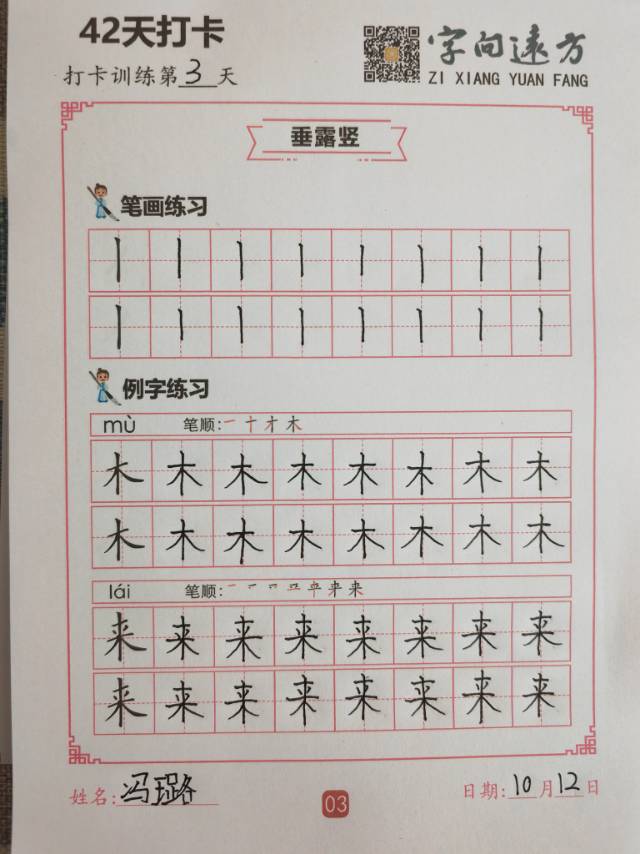 42天打卡
字向远方
打卡训练第3天
ZI XIANG YUAN FANG
垂露竖
笔画练习
例字练习
mù 笔顺: 一 十 才 木
木 木 木 木 木 木 木 木
木 木 木 木 木 木 木 木
lái 笔顺:
来 来 来 来 来 来 来 来
来 来 来 来 来 来 来 来
姓名: 冯璐
03
日期: 10月12日